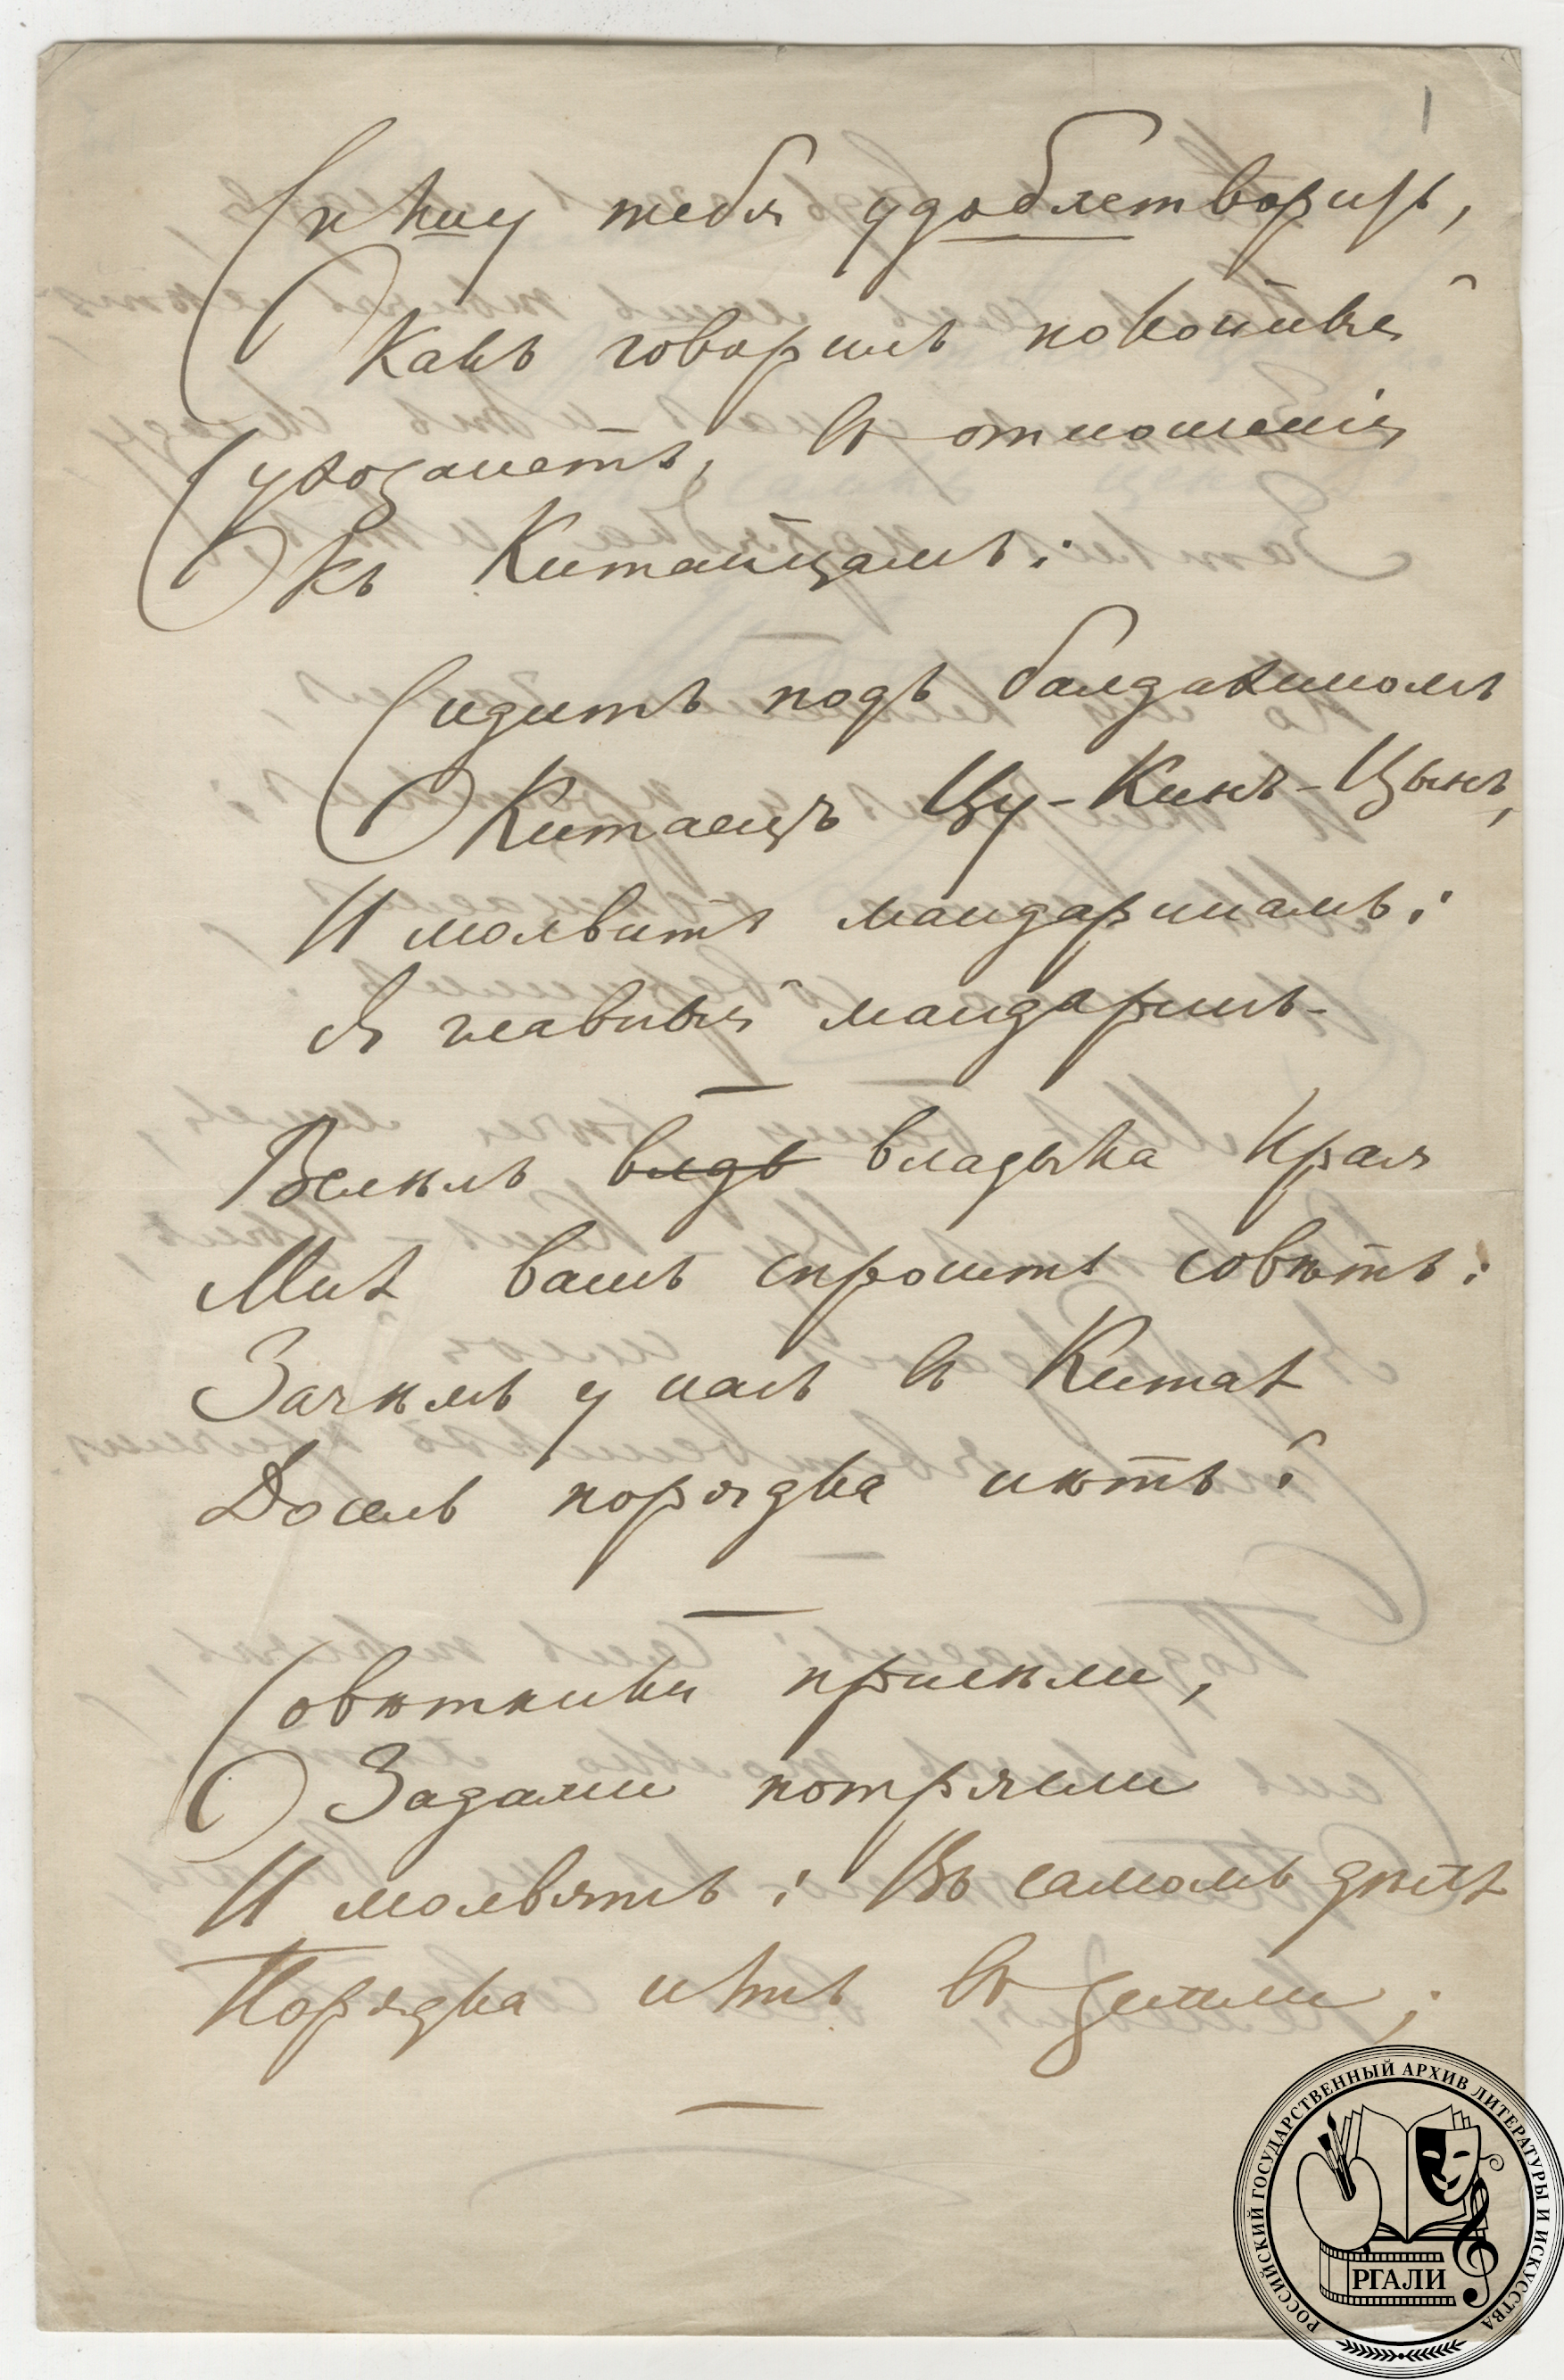 1
Спѣшу тебя удоблетворить,
Какъ говорилъ покойный
Сухозанетъ, въ отношеніи
къ Китайцамъ:
Сидитъ подъ балдахиномъ
Китаецъ Цу-Кинъ-Цынъ,
И молвитъ мандаринамъ:
Я главный мандаринъ.
Велѣлъ ведь владыка края
Мнѣ вашъ спросить совѣтъ:
Зачѣмъ у насъ въ Китаѣ
Досель порядка нѣтъ?
Совѣтники присѣли,
Задами потрясли
И молвятъ: Въ самомъ дѣлѣ
Порядка нѣтъ въ земли;
РОССИЙСКИЙ ГОСУДАРСТВЕННЫЙ АРХИВ ЛИТЕРАТУРЫ И ИСКУССТВА
РГАЛИ